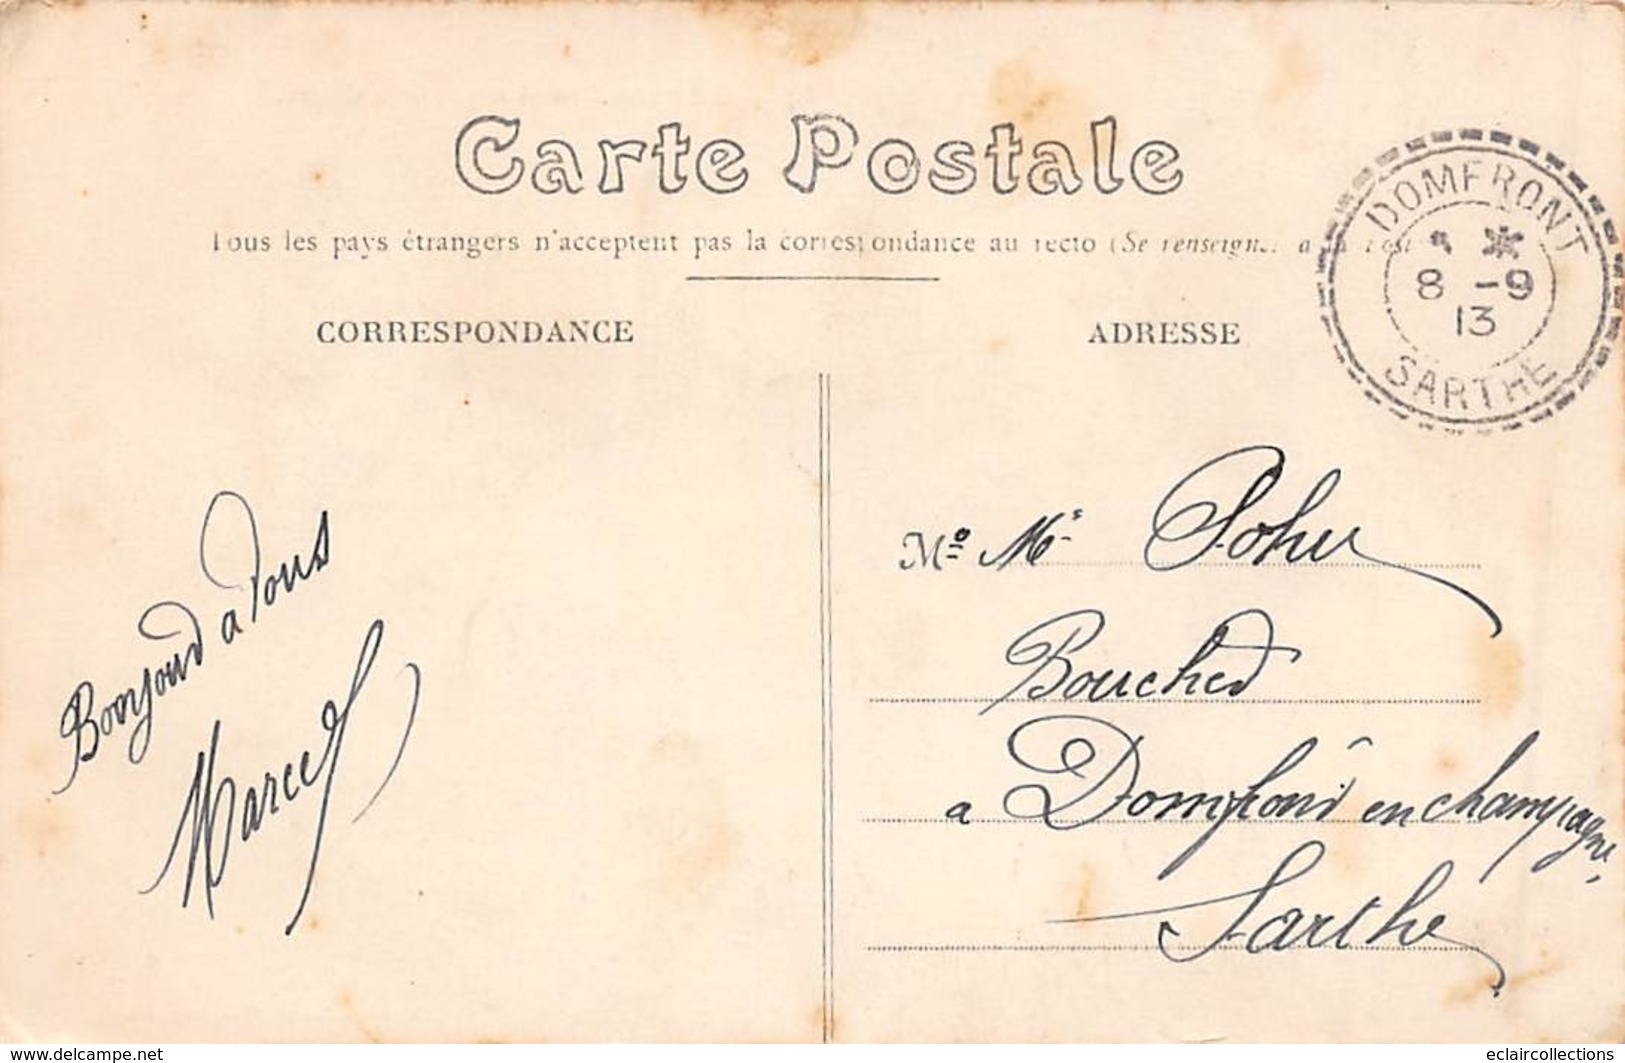 Carte Postale
Tous les pays étrangers n'acceptent pas la correspondance au recto (Se renseigner à la Poste
DOMFRONT
8 -9
13
SARTHE
CORRESPONDANCE
ADRESSE
Bonjour a Tous
Marcel
Mº Mr Pohu
Boucher
a Domfront en champagne.
Sarthe
www.delcampe.net
eclaircollections